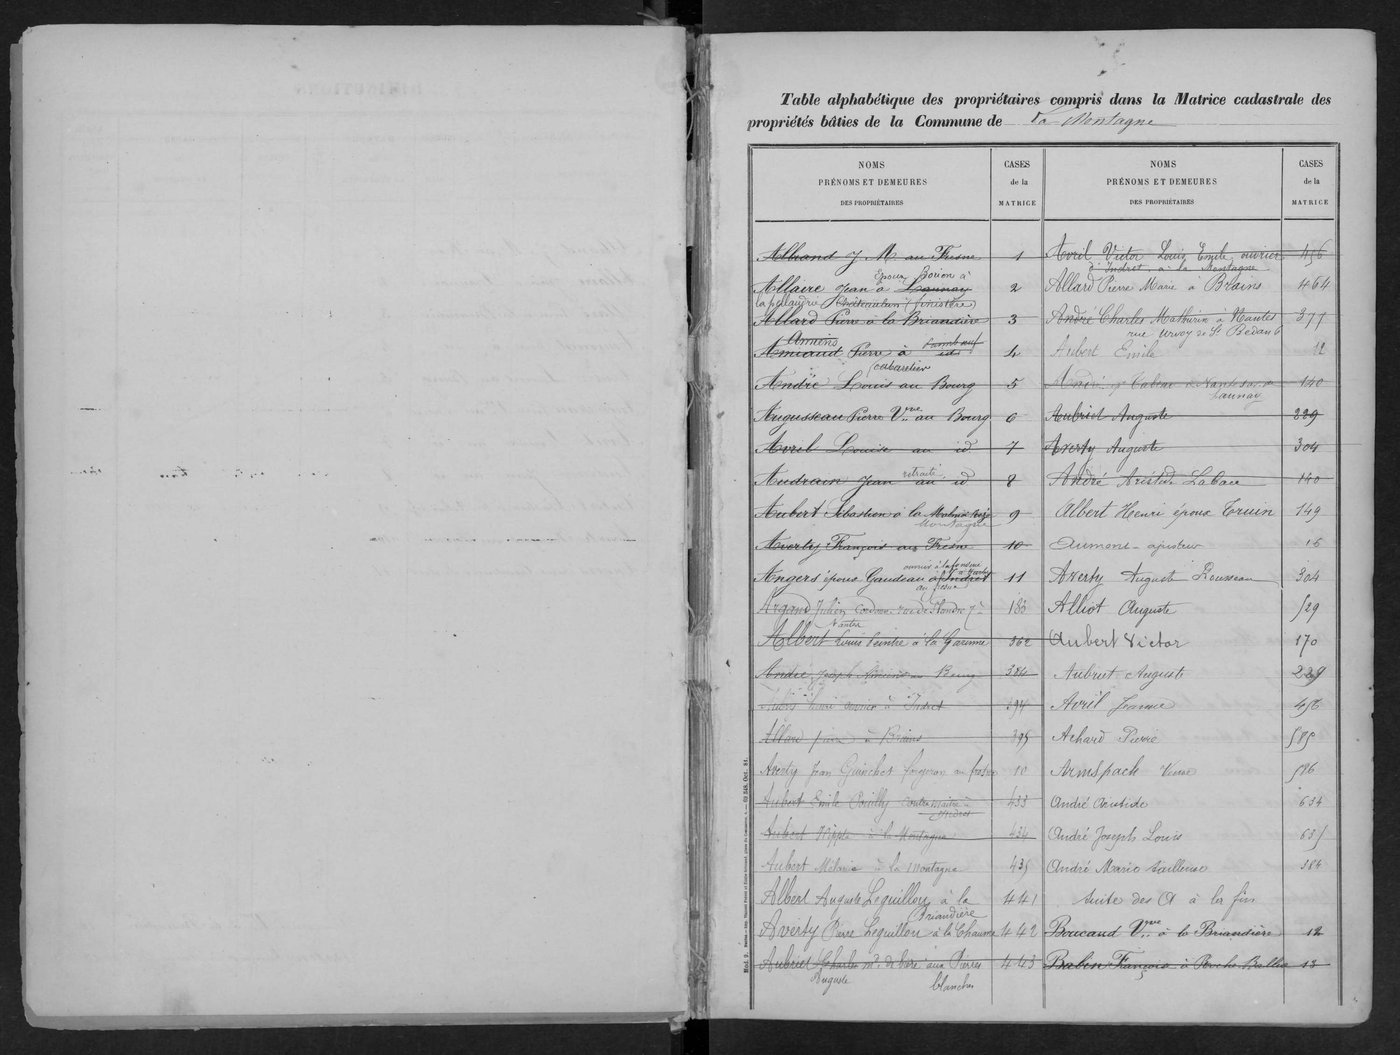 Table alphabétique des propriétaires compris dans la Matrice cadastrale des
propriétés bâties de la Commune de La Montagne
NOMS
PRÉNOMS ET DEMEURES
DES PROPRIÉTAIRES
CASES
de la
MATRICE
Albrand J M au Fresne 1
Epoux Borion à
Allaire Jean à Launay 2
la pelaudre (Châteaulin) (finistère)
Allard Pierre à la Briandière 3
Amiaud Pierre à id 4
cabaretier
André Louis au Bourg 5
Augusseau Pierre Vve au Bourg 6
Avril Louise au id 7
retraité
Audrain Jean au id 8
Aubert Sébastien à la 9
Montagne
Averty François au Fresne 10
Angers époux Gaudeau à Indret 11
au fresne
Argand Julien rue de Flandre 7 183
Nantes
Albert Louis Peintre à la Garenne 362
André Joseph au Bourg 384
ouvrier à Indret 394
Allard à Brains 395
Averty Jean Guinchet forgeron au fresne 10
Aubert Emile Pouilly contre maître à 433
Indret
Aubert à la Montagne 434
Aubert Mélanie à la Montagne 435
Albert Auguste Leguillou à la 441
Briandière
Averty Pierre Leguillou à la Chaume 442
Aubriet Charles md de bois aux Pierres 443
Auguste blanches
NOMS
PRÉNOMS ET DEMEURES
DES PROPRIÉTAIRES
CASES
de la
MATRICE
Avril Victor Louis Emile ouvrier 456
à Indret, à la Montagne
Allard Pierre Marie à Brains 464
André Charles Mathurin à Nantes 377
rue Urvoy de St Bedan 6
Aubert Emile 12
André 140
Launay
Aubriet Auguste 229
Averty Auguste 304
André Aristide Labace 140
Albert Henri époux Truin 149
Aumont ajusteur 16
Averty Auguste Rousseau 304
Alliot Auguste 529
Aubert Victor 170
Aubriet Auguste 229
Avril Jeanne 456
Achard Pierre 585
Armspach Veuve 586
André Aristide 634
André Joseph Louis 635
André Marie tailleuse 384
Suite des A à la fin
Boucaud Vve à la Briandière 12
Babin François à Roche Ballue 13